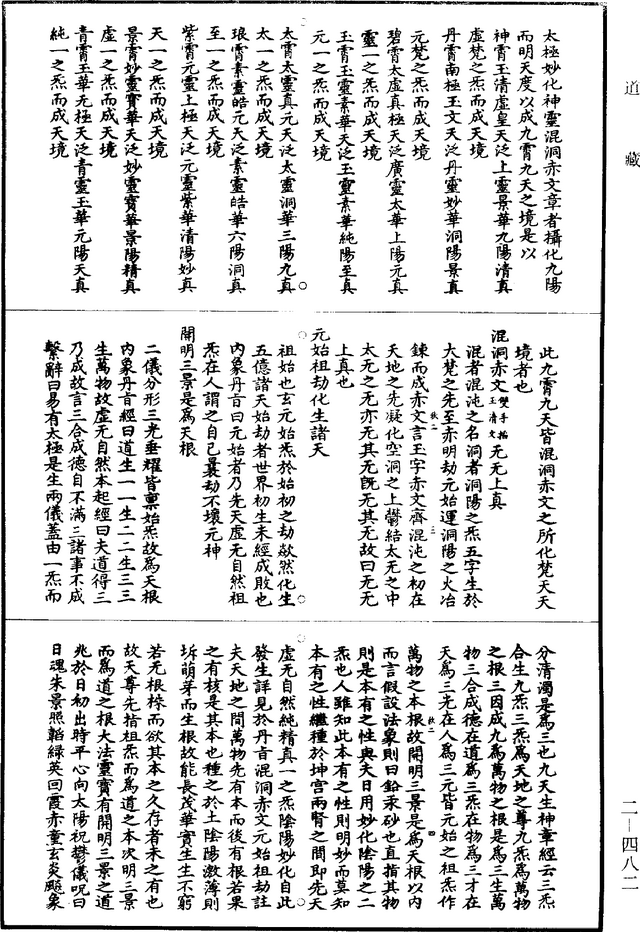 道藏
太極妙化神靈混洞赤文章者攝化九陽
而明天度以成九霄九天之境是以
神霄玉清虛皇天泛上靈景華九陽清真
虛梵之炁而成天境
丹霄南極玉文天泛丹靈妙華洞陽景真
元梵之炁而成天境
碧霄太虛真極天泛廣靈太華上陽元真
靈一之炁而成天境
玉霄玉靈素華天泛玉靈素華純陽至真
元一之炁而成天境
太霄太靈真元天泛太靈洞華三陽九真
太一之炁而成天境
琅霄素靈皓元天泛素靈皓華六陽洞真
至一之炁而成天境
紫霄元靈上極天泛元靈紫華清陽妙真
天一之炁而成天境
景霄妙靈寶華天泛妙靈寶華景陽精真
虛一之炁而成天境
青霄玉華无極天泛青靈玉華元陽天真
純一之炁而成天境
此九霄九天皆混洞赤文之所化梵天天
境者也
混洞赤文雙手掐玉清文无无上真
混者混沌之名洞者洞陽之炁五字生於
大梵之先至赤明劫元始運洞陽之火冶
鍊而成赤文言玉字赤文齊混沌之初在
天地之先凝化空洞之上鬱結太无之中
太无之无亦无其无既无其无故曰无无
上真也
元始祖劫化生諸天
祖始也玄元始炁於始初之劫歘然化生
五億諸天始劫者世界初生未經成敗也
內象丹旨曰元始者乃先天虛无自然祖
炁在人謂之自己曩劫不壞元神
開明三景是為天根
二儀分形三光垂耀皆禀始炁故為天根
內象丹旨經曰道生一一生二二生三三
生萬物故虛无自然本起經曰夫道得三
乃成故言三合成德自不滿三諸事不成
繫辭曰易有太極是生兩儀蓋由一炁而
分清濁是為三也九天生神章經云三炁
合生九炁三炁為天地之尊九炁為萬物
之根三因成九為萬物之根是為三生萬
物三合成德在道為三炁在物為三才在
天為三光在人為三元皆元始之祖炁作
萬物之本根故開明三景是為天根以內
而言假設法象則曰鉛汞砂也直指其物
則是本有之性與夫日用妙化陰陽之二
炁也人雖知此本有之性則明妙而莫知
本有之性繼種於坤宫兩腎之間即先天
虛无自然純精真一之炁陰陽妙化自此
發生詳見於丹旨混洞赤文元始祖劫註
夫天地之間萬物先有本而後有根若果
之有核是其本也種之於土陰陽激薄則
坼萌芽而生根故能長茂華實生生不窮
若无根榇而欲其本之久存者未之有也
故天尊先指祖炁而為道之本次明三景
而為道之根大法靈寶有開明三景之道
兆於日初出時平心向太陽祝鬱儀呪曰
日魂朱景照韜綠英回霞赤童玄炎飈象
二—四八二